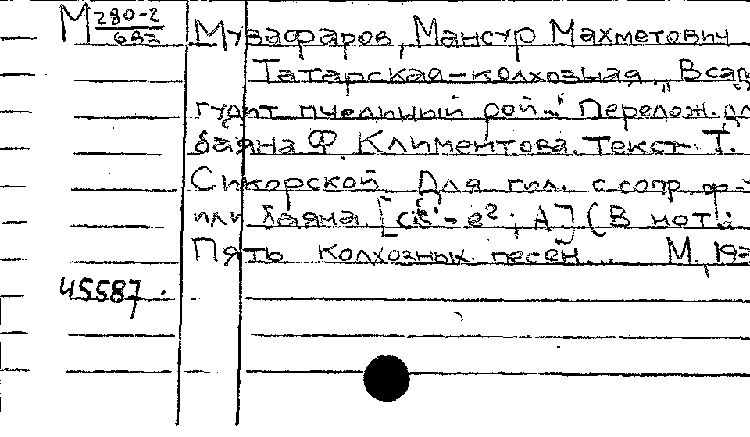 М 280-2/683 Музафаров, Мансур Махметович
Татарская-колхозная „Всад
гудит пчелиный рой..." Перелож. дл
баяна Ф. Климентова. Текст Т.
Сикорской. Для гол. с сопр. ф-
или баяна [cis¹-e²; A] (В нот:
Пять колхозных песен... М., 193
45587.